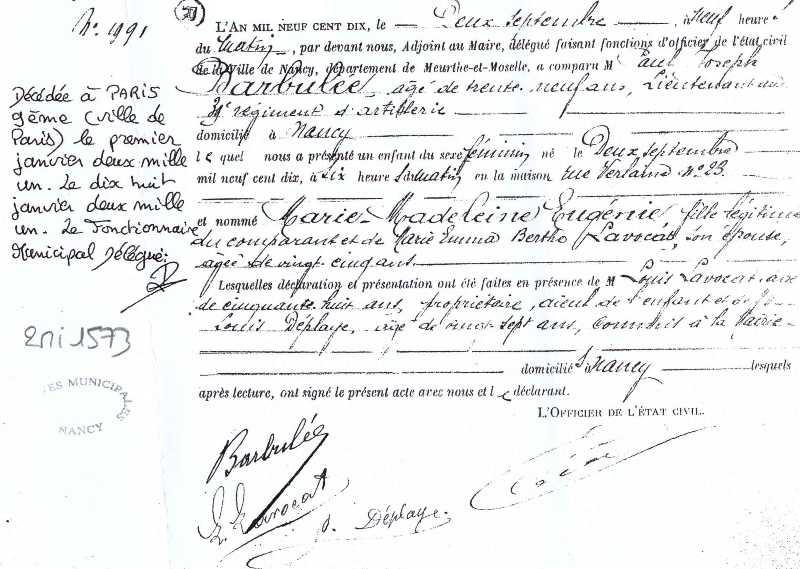 N° 1991
L'AN MIL NEUF CENT DIX, le Deux septembre, à neuf heure
du matin, par devant nous, Adjoint au Maire, délégué faisant fonctions d'officier de l'état civil
de la Ville de Nancy, département de Meurthe-et-Moselle, a comparu M Paul Joseph
Barbulée, agé de trente neuf ans, Lieutenant au
régiment d'artillerie
domicilié à Nancy
le quel nous a présenté un enfant du sexe féminin né le Deux septembre
mil neuf cent dix, à six heure du matin en la maison rue Verlaine n° 23.
et nommé Marie-Madeleine Eugénie fille légitime
du comparant et de Marie Emma Berthe Lavocat, son épouse,
agée de vingt cinq ans
Lesquelles déclaration et présentation ont été faites en présence de M Louis Lavocat, agé
de cinquante huit ans, propriétaire, aïeul de l'enfant et de
Louis Déplaye, agé de vingt sept ans, commis à la Mairie
domicilié à Nancy lesquels
après lecture, ont signé le présent acte avec nous et le déclarant.
L'OFFICIER DE L'ÉTAT CIVIL.
Barbulée
L. Lavocat
Déplaye.
Décédée à PARIS
9ème (ville de
Paris) le premier
janvier deux mille
un. Le dix huit
janvier deux mille
un. Le Fonctionnaire
Municipal Délégué:
2Mi 1573
ES MUNICIPALES
NANCY